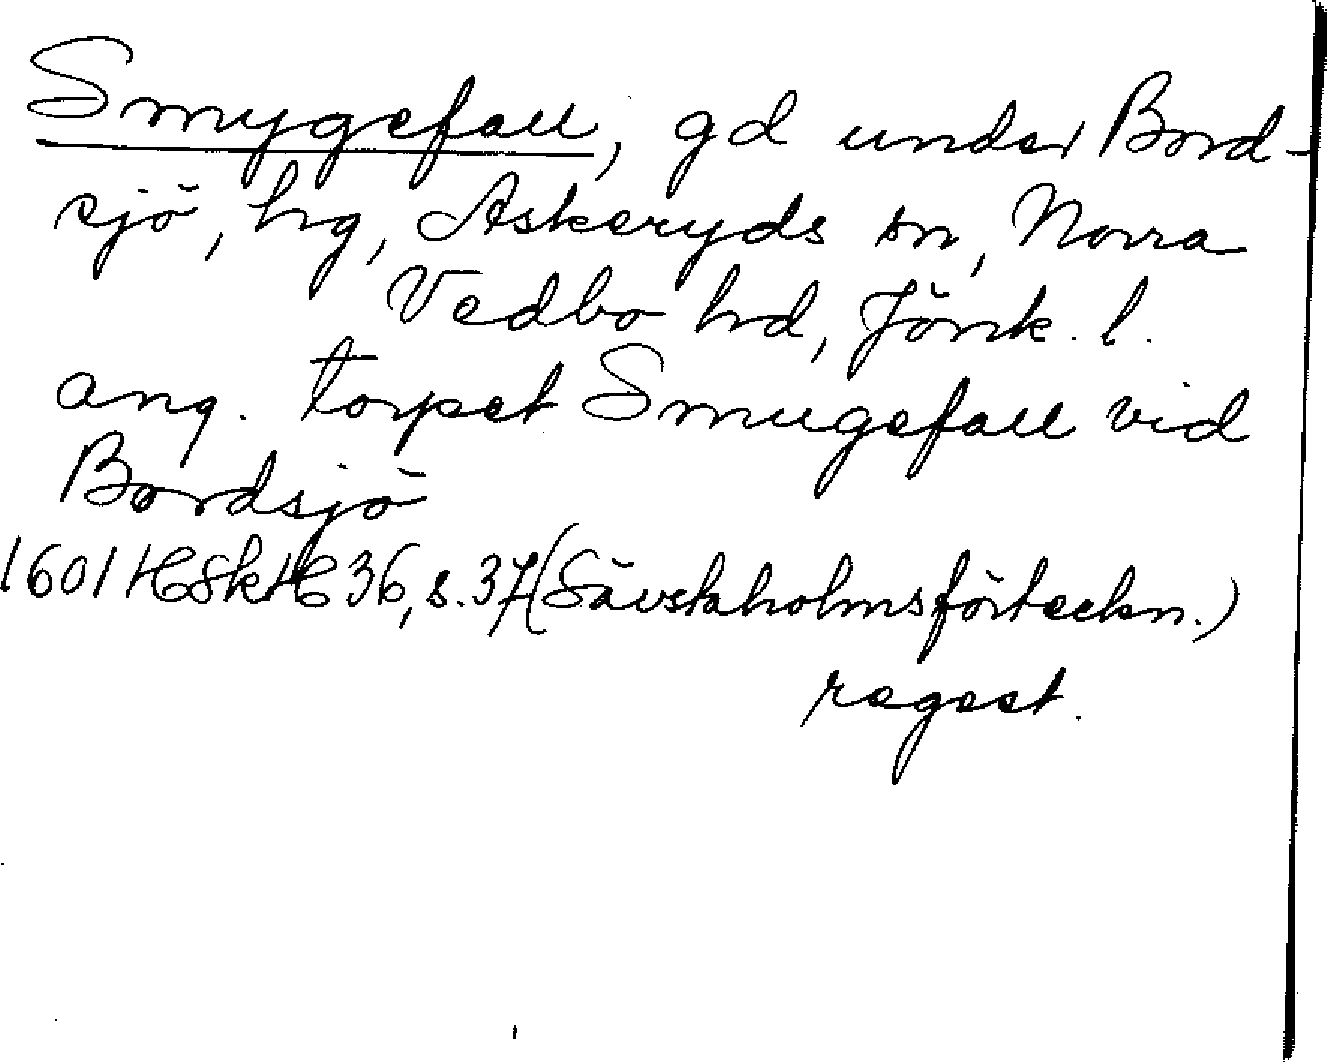 Smygefall, gd under Bord-
sjö, hg, Askeryds sn, Norra
Vedbo hd, Jönk. l.
ang. torpet Smugefall vid
Bordsjö
1601 HSkH 36, s. 37 (Sävstaholmsförteckn.)
regest.